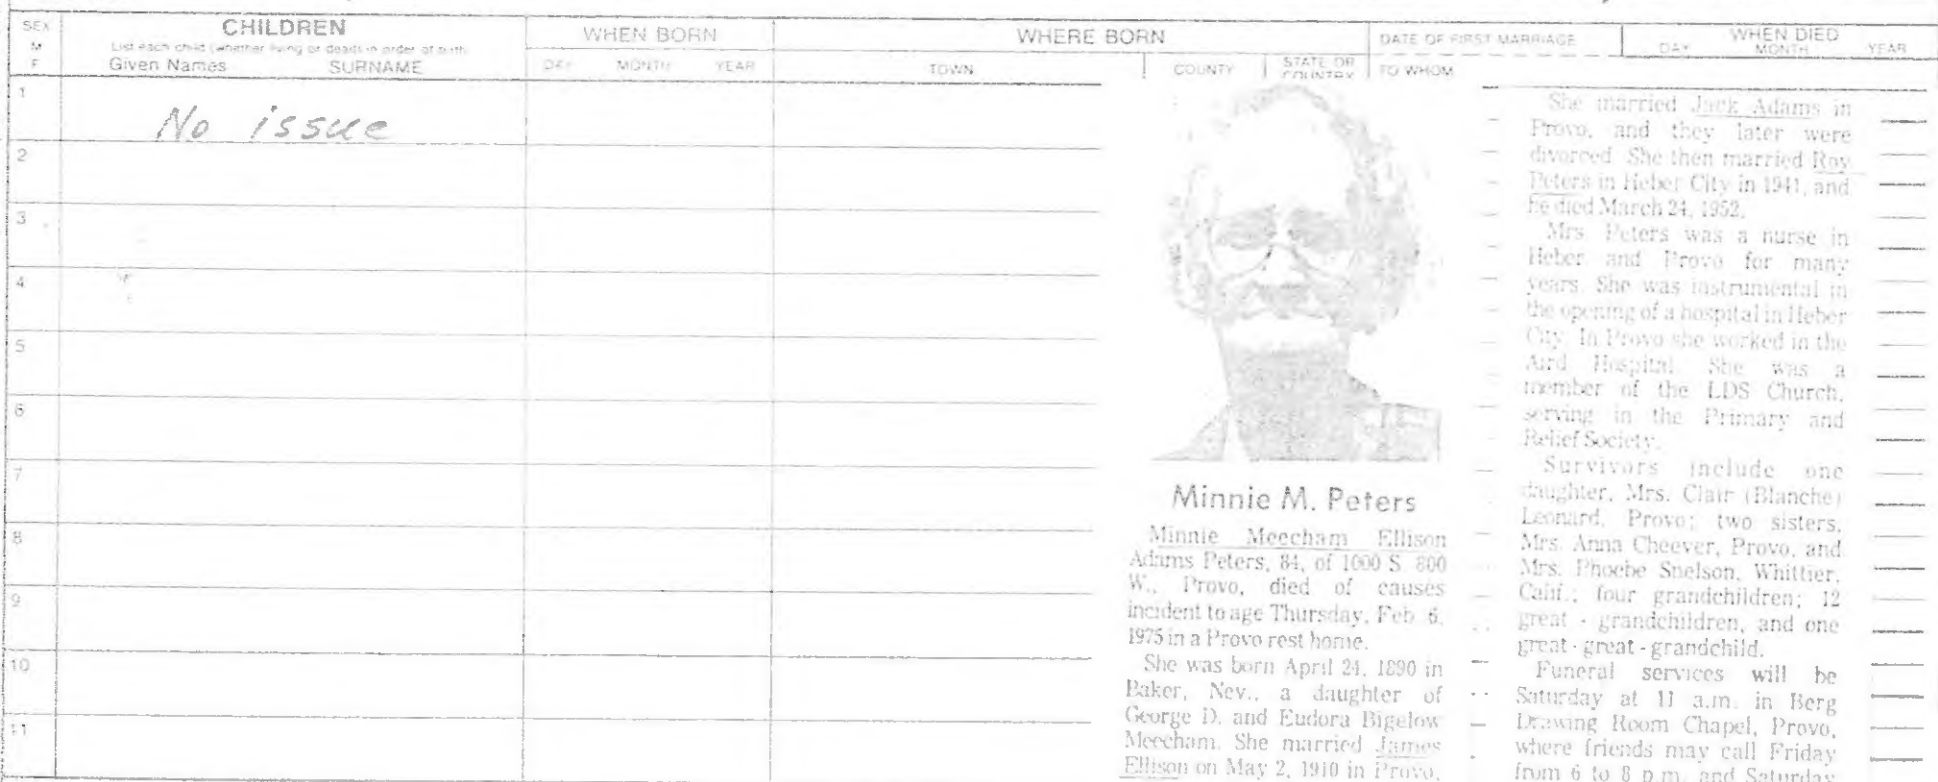 SEX
M
F
CHILDREN
List each child (whether living or dead) in order of birth
Given Names SURNAME
WHEN BORN
DAY MONTH YEAR
WHERE BORN
TOWN
COUNTY
STATE OR
COUNTRY
DATE OF FIRST MARRIAGE
TO WHOM
WHEN DIED
DAY MONTH YEAR
1
No issue
2
3
4
5
6
7
8
9
10
11
Minnie M. Peters
Minnie Meecham Ellison
Adams Peters, 84, of 1000 S. 800
W., Provo, died of causes
incident to age Thursday, Feb. 6,
1975 in a Provo rest home.
She was born April 24, 1890 in
Baker, Nev., a daughter of
George D. and Eudora Bigelow
Meecham. She married James
Ellison on May 2, 1910 in Provo,
She married Jack Adams in
Provo, and they later were
divorced. She then married Roy
Peters in Heber City in 1941, and
he died March 24, 1952.
Mrs. Peters was a nurse in
Heber and Provo for many
years. She was instrumental in
the opening of a hospital in Heber
City. In Provo she worked in the
Aird Hospital. She was a
member of the LDS Church,
serving in the Primary and
Relief Society.
Survivors include one
daughter, Mrs. Clair (Blanche)
Leonard, Provo; two sisters,
Mrs. Anna Cheever, Provo, and
Mrs. Phoebe Snelson, Whittier,
Calif.; four grandchildren; 12
great - grandchildren, and one
great - great - grandchild.
Funeral services will be
Saturday at 11 a.m. in Berg
Drawing Room Chapel, Provo,
where friends may call Friday
from 6 to 8 p.m. and Saturday